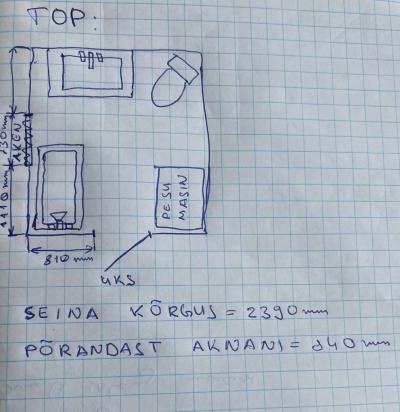 TOP:
730mm
AKEN
1110mm
PESU
MASIN
810mm
UKS
SEINA KÕRGUS = 2390mm
PÕRANDAST AKNANI = 840mm